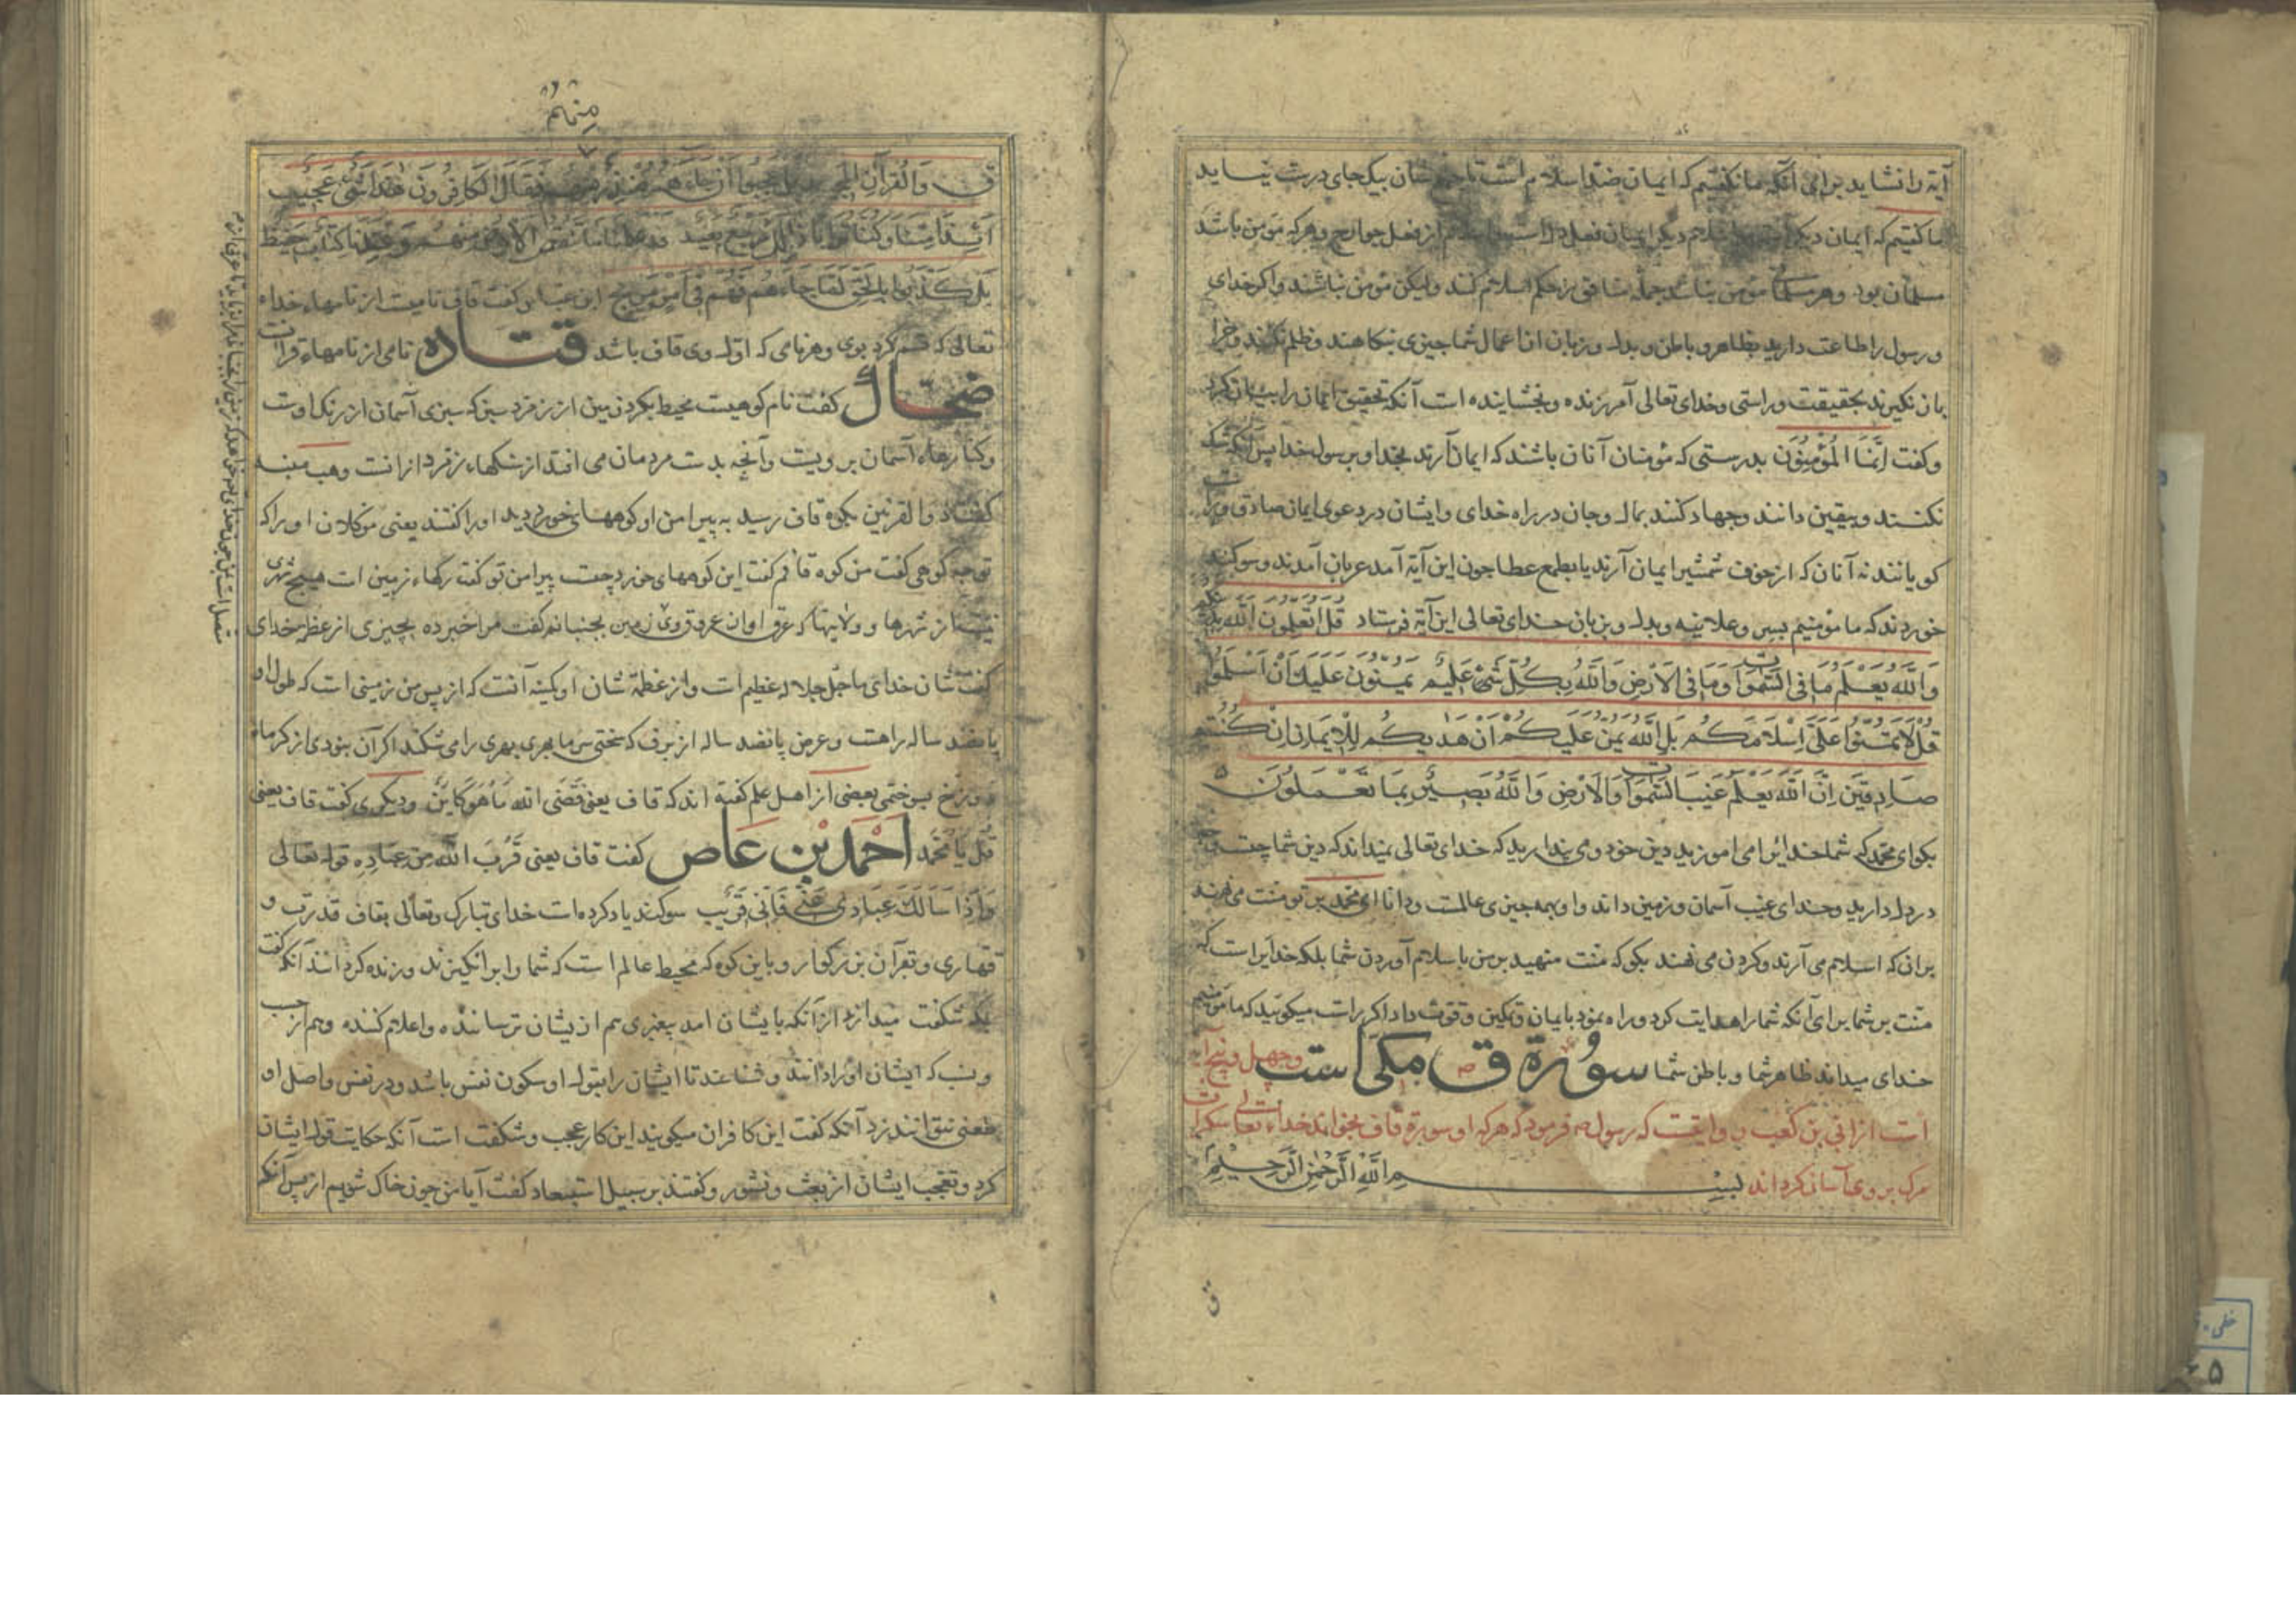 آیة را نشاید برای آنکه ما نکفتیم که ایمان ضد اسلام است تا جمع شان بیکجای درست نیاید
ما کفتیم که ایمان دیکر اسلام دیکر ایمان فعل دل است و اسلام از فعل جوارح و هرکه مؤمن باشد
مسلمان بود و هر مسلمان مؤمن نباشد جمله منافق بر حکم اسلام کنند ولیکن مؤمن نباشند و اکر خدای
و رسول را طاعت دارید بظاهر و باطن و بدل و زبان از اعمال شما چیزی بنکاهند و ظلم نکنند و جزا
باز نکیرند بحقیقت و راستی و خدای تعالی آمرزنده و بخشاینده است آنکه تحقیق ایمان را بیان کرد
و کفت اِنَّمَا الْمُؤْمِنُونَ بدرستی که مؤمنان آنان باشند که ایمان آرند بخدا و برسول خدا پس آنکه شک
نکنند و بیقین دانند و جهاد کنند بمال و جان در راه خدای و ایشان در دعوی ایمان صادق و راست
کویانند نه آنان که از خوف شمشیر ایمان آرند یا بطمع عطا چون این آیة آمد عربان آمدند و سوکند
خوردند که ما مؤمنیم بسر و علانیه و بدل و بزبان خدای تعالی این آیة فرستاد قُلْ اَتُعَلِّمُونَ اللّٰهَ بِدِینِکُمْ
وَاللّٰهُ یَعْلَمُ مَا فِی السَّمٰوَاتِ وَمَا فِی الْاَرْضِ وَاللّٰهُ بِکُلِّ شَیْءٍ عَلِیمٌ یَمُنُّونَ عَلَیْکَ اَنْ اَسْلَمُوا
قُلْ لَا تَمُنُّوا عَلَیَّ اِسْلَامَکُمْ بَلِ اللّٰهُ یَمُنُّ عَلَیْکُمْ اَنْ هَدٰیکُمْ لِلْاِیمَانِ اِنْ کُنْتُمْ
صَادِقِینَ اِنَّ اللّٰهَ یَعْلَمُ غَیْبَ السَّمٰوَاتِ وَالْاَرْضِ وَاللّٰهُ بَصِیرٌ بِمَا تَعْمَلُونَ
بکو ای محمد که شما خدایرا می اموزید دین خود و می پندارید که خدای تعالی نمیداند که دین شما چیست
در دل دارید و خدای غیب آسمان و زمین داند و او بهمه چیزی عالمست و دانا ای محمد بر تو منت می نهند
برانکه اسلام می آرند و کردن می نهند بکو که منت منهید بر من باسلام آوردن شما بلکه خدایرا است که
منت بر شما برای آنکه شما را هدایت کرد و راه نمود بایمان و تمکین و قوت داد اکر راست میکوئید که ما مؤمنیم
خدای میداند ظاهر شما و باطن شما سُورَة ق مکی است و چهل و پنج آیه
است از ابی بن کعب روایتست که رسول ص فرمود که هرکه او سورة قاف بخواند خداء تعالی سکرات
مرک بر وی آسان کرداند بِسْمِ اللّٰهِ الرَّحْمٰنِ الرَّحِیمِ
ق
مِنْهُمْ
ق وَالْقُرْآنِ الْمَجِیدِ بَلْ عَجِبُوا اَنْ جَاءَهُمْ مُنْذِرٌ مِنْهُمْ فَقَالَ الْکَافِرُونَ هٰذَا شَیْءٌ عَجِیبٌ
اَئِذَا مِتْنَا وَکُنَّا تُرَابًا ذٰلِکَ رَجْعٌ بَعِیدٌ قَدْ عَلِمْنَا مَا تَنْقُصُ الْاَرْضُ مِنْهُمْ وَعِنْدَنَا کِتَابٌ حَفِیظٌ
بَلْ کَذَّبُوا بِالْحَقِّ لَمَّا جَاءَهُمْ فَهُمْ فِی اَمْرٍ مَرِیجٍ ابن عباس کفت قاف نامیست از نامهاء خداء
تعالی که قسم کرد بوی و هر نامی که اول وی قاف باشد قتاده نامی از نامهاء قرآنست
ضحاک کفت نام کوهیست محیط بکرد زمین از زمرد سبز که سبزی آسمان از رنک اوست
و کنارهاء آسمان بر ویست و آنچه بدست مردمان می افتد از سنکهاء زمرد از آنست وهب منبه
کفت ذوالقرنین بکوه قاف رسید به پیرامن او کوههاء خورد دید او را کفتند یعنی موکلان او را که
تو چه کوهی کفت من کوه قافم کفت این کوههای خورد چیست پیرامن تو کفت رکهاء زمین است هیچ شهری
نیست از شهرها و ولایتها که عرق او ان عروق وی زمین بجنبانم کفت مرا خبر ده بچیزی از عظمت خدای
کفت شان خدای ما جل جلاله عظیم است و از عظمة شان او کمینه آنست که از پس من زمینی است که طول او
پانصد ساله راهست و عرض پانصد ساله از برف که سختی سرما بهری بهری را می شکند اکر آن نبودی از کرماء
دوزخ بسوختمی بعضی از اهل علم کفته اند که قاف یعنی قَضَی اللّٰه مَا هُوَ کَایِنٌ و دیکری کفت قاف یعنی
قُلْ یَا مُحَمَّد اَحْمَد بْن عَاص کفت قاف یعنی قَرُبَ اللّٰه مِنْ عِبَادِهِ قوله تعالی
وَاِذَا سَاَلَکَ عِبَادِی عَنِّی فَاِنِّی قَرِیبٌ سوکند یاد کرده است خدای تبارک و تعالی بقاف قدرت و
قهاری و بقرآن بزرکوار و باین کوه که محیط عالم است که شما را برانکیزند و زنده کردانند آنکه کفت
بلکه شکفت میدارند از آنکه بایشان امد پیغمبری هم از یشان ترساننده و اعلام کننده و هم از حسب
و نسب که ایشان او را دانند و شناعند تا ایشان را بقول او سکون نفس باشد و در نفس و اصل او
طعنی نتوانند زد آنکه کفت این کافران میکویند این کار عجب و شکفت است آنکه حکایت قول ایشان
کرد و تعجب ایشان از بعث و نشور و کفتند بر سبیل استبعاد کفت آیا من چون خاک شویم از پس آنکه
خطی